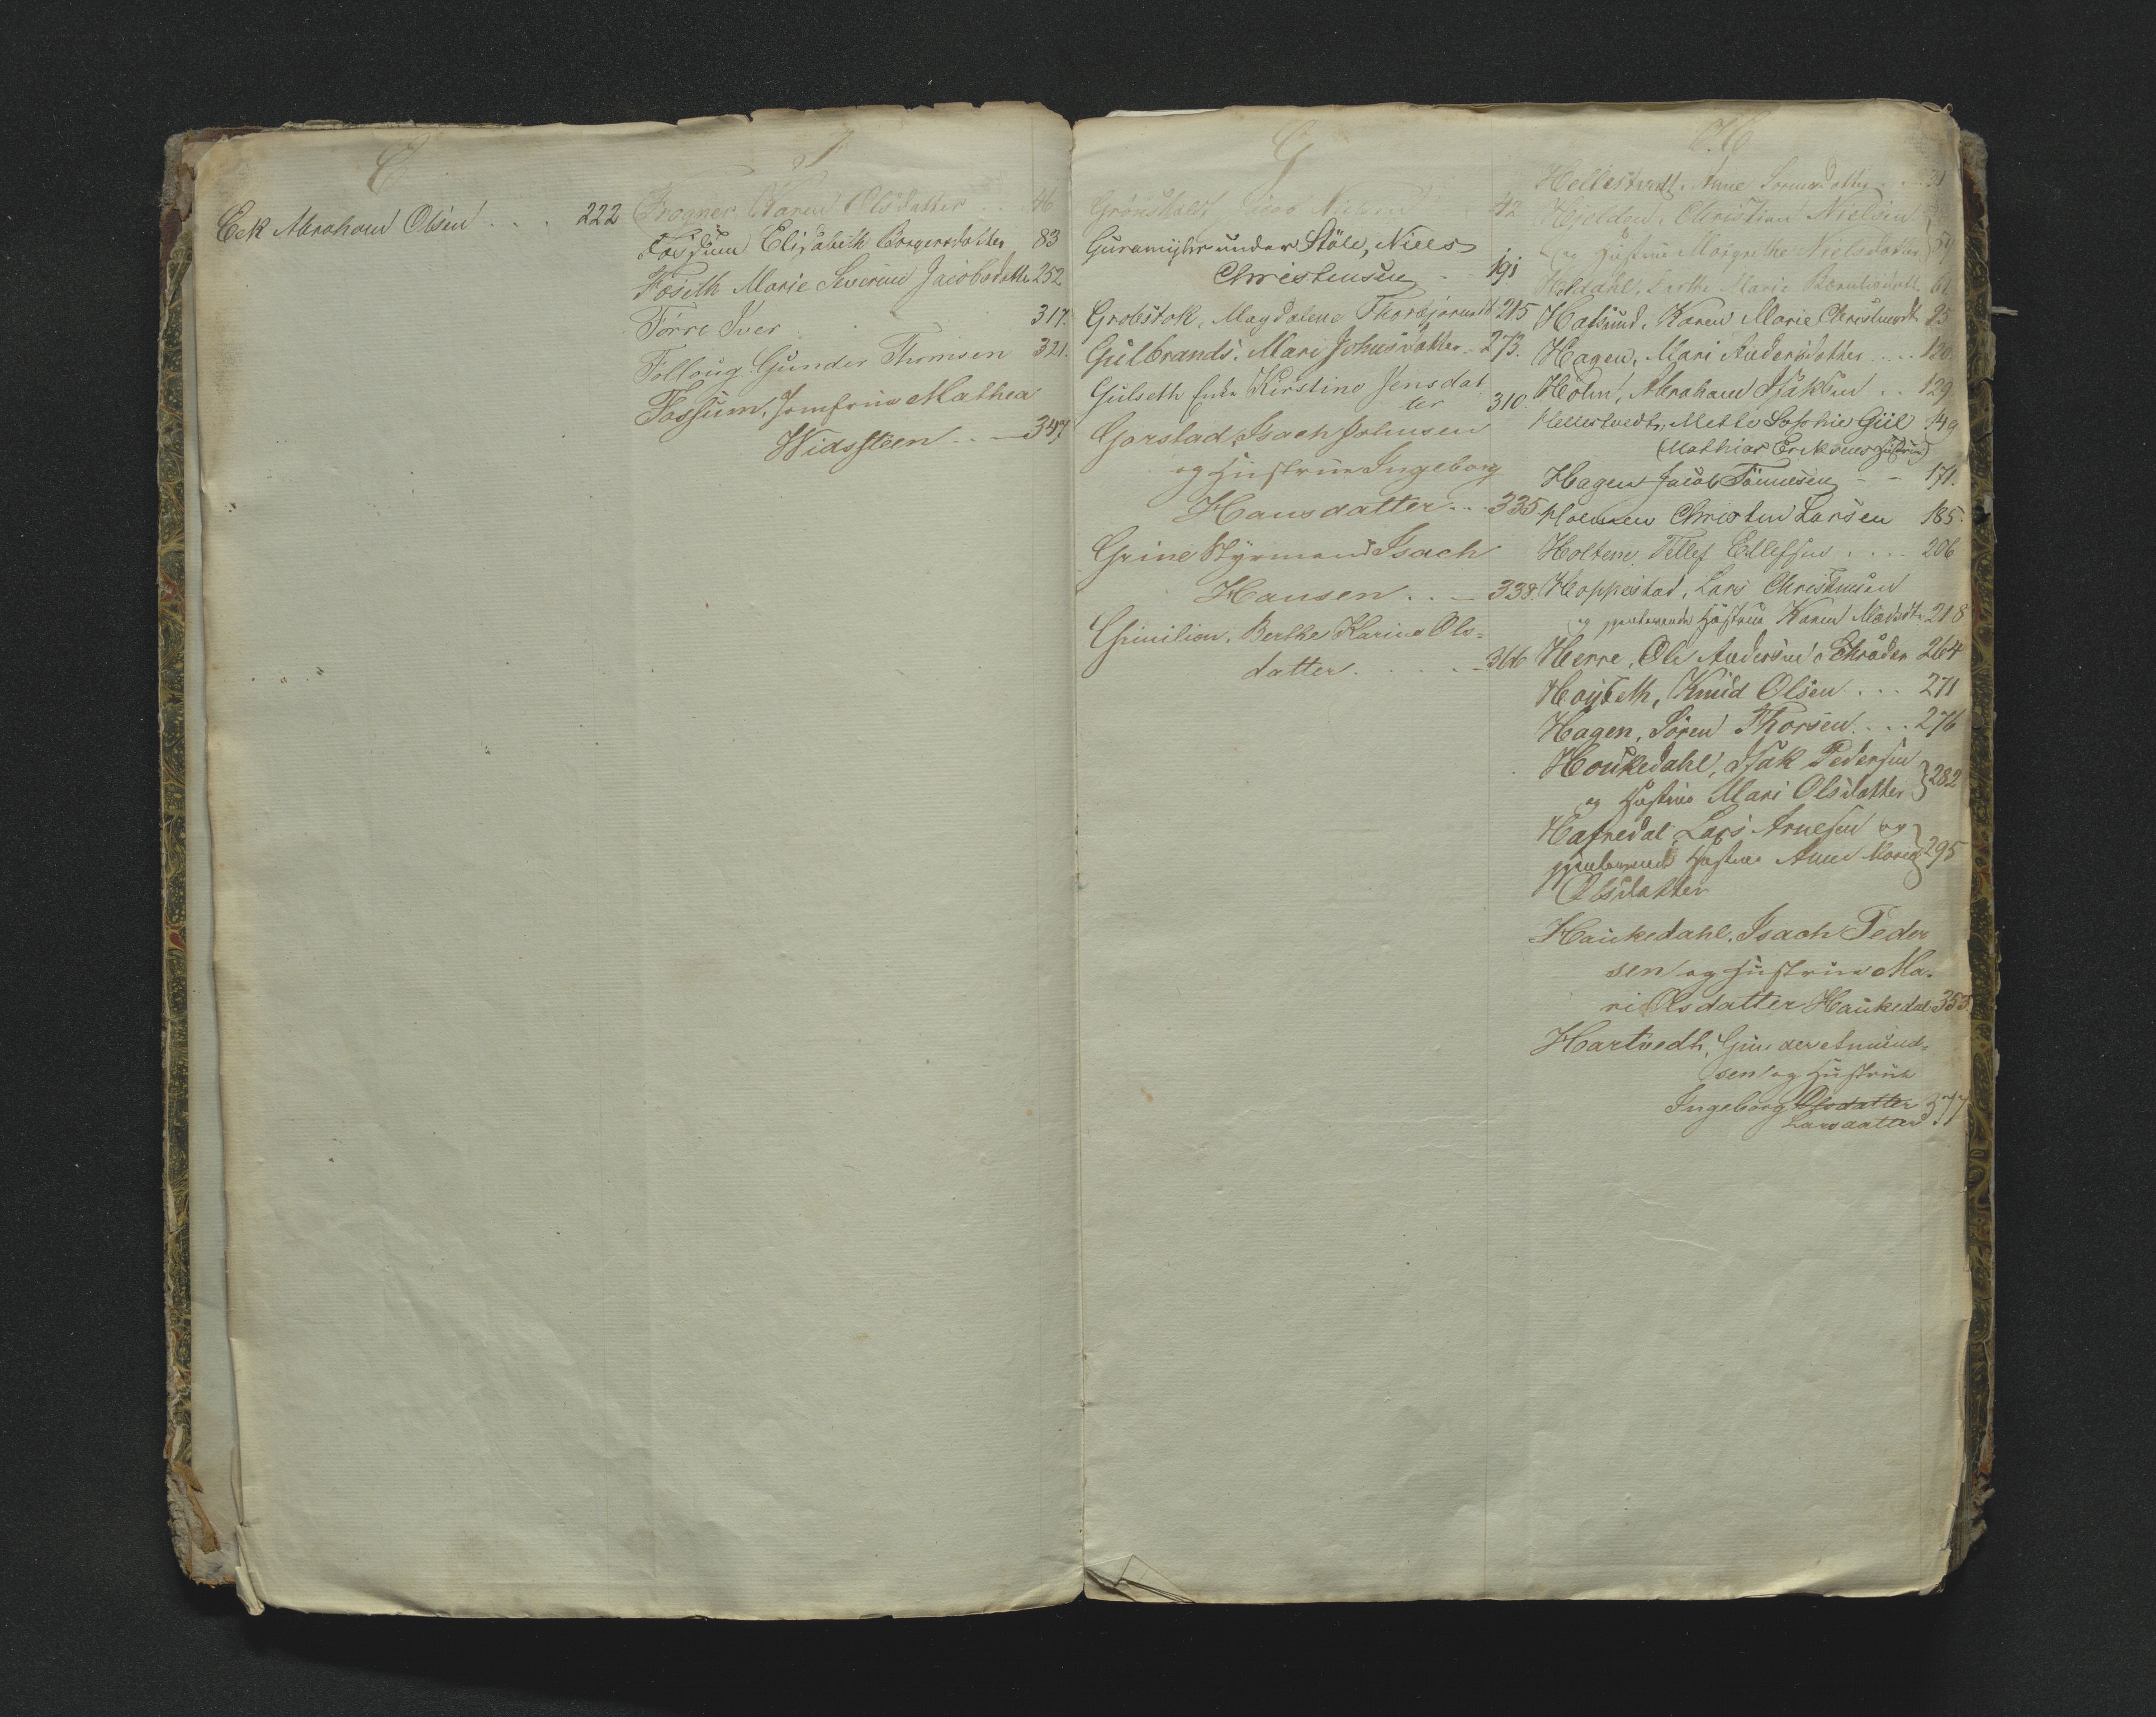 E
Eek Abraham Olsen .... 222
F
Frogner, Karen Olsdatter .. 46
Fossum Elisabeth Borgersdatter 83
Foseth Marie Severine Jacobsdattr 252
Førre Iver 317.
Follaug Gunder Thomsen 321.
Fossum, Jomfrue Mathea
Widssteen .. 347
G
Grönsholdt Jacob Nielsen 42
under Stöle, Niels
Christensen .. 191
Grobstok, Magdalene Thorbjørnsdt 215
Gulbrands. Mari Johnsdatter .. 273.
Gulseth Enke Kirstine Jensdat
ter 310.
Gorstad, Isach Johnsen
og Hustrue Ingeborg
Hansdatter ... 335
Grine Styrmand Isach
Hansen ... 338.
Berthe Karine Ols=
datter ..... 366
H
Hellestvedt, Anne Sørensdatter .. 31
Hjelden, Christian Nielsen
og Hustrue Margrethe Nielsdatter } 59
Holdahl, Dorthe Marie 61
Halsund, Karen Marie Christensdt 95
Hagen, Mari Andersdatter .... 120.
Holm, Abraham Isaksen .. 129
Hellestvedt, Mette Sophie Giil 149
(Mathias Eriksens Hustrue)
Hagen Jacob Tönnesen - - 171.
Holmen Christen Larsen 185.
Holtene, Tellef Ellefsen .... 206
Hoppestad, Lars Christensen
og gjenlevende Hustrue Karen Madsdtr 218
Herre, Ole Andersen Schrøder 264
Høyseth, Knud Olsen ... 271
Hagen, Søren Thorsen ... 276
Houkedahl, Isak Pedersen
og Hustrue Mari Olsdatter } 282
Hafredal, Lars Arnesen og
gjenlevende Hustrue Anne Marie } 295
Olsdatter
Haukedahl, Isach Peder
sen og Hustrue Ma-
ri Olsdatter Haukedal 353.
Hartvedt, Gunder Amund=
sen og Hustrue
Ingeborg Olsdatter 377
Larsdatter